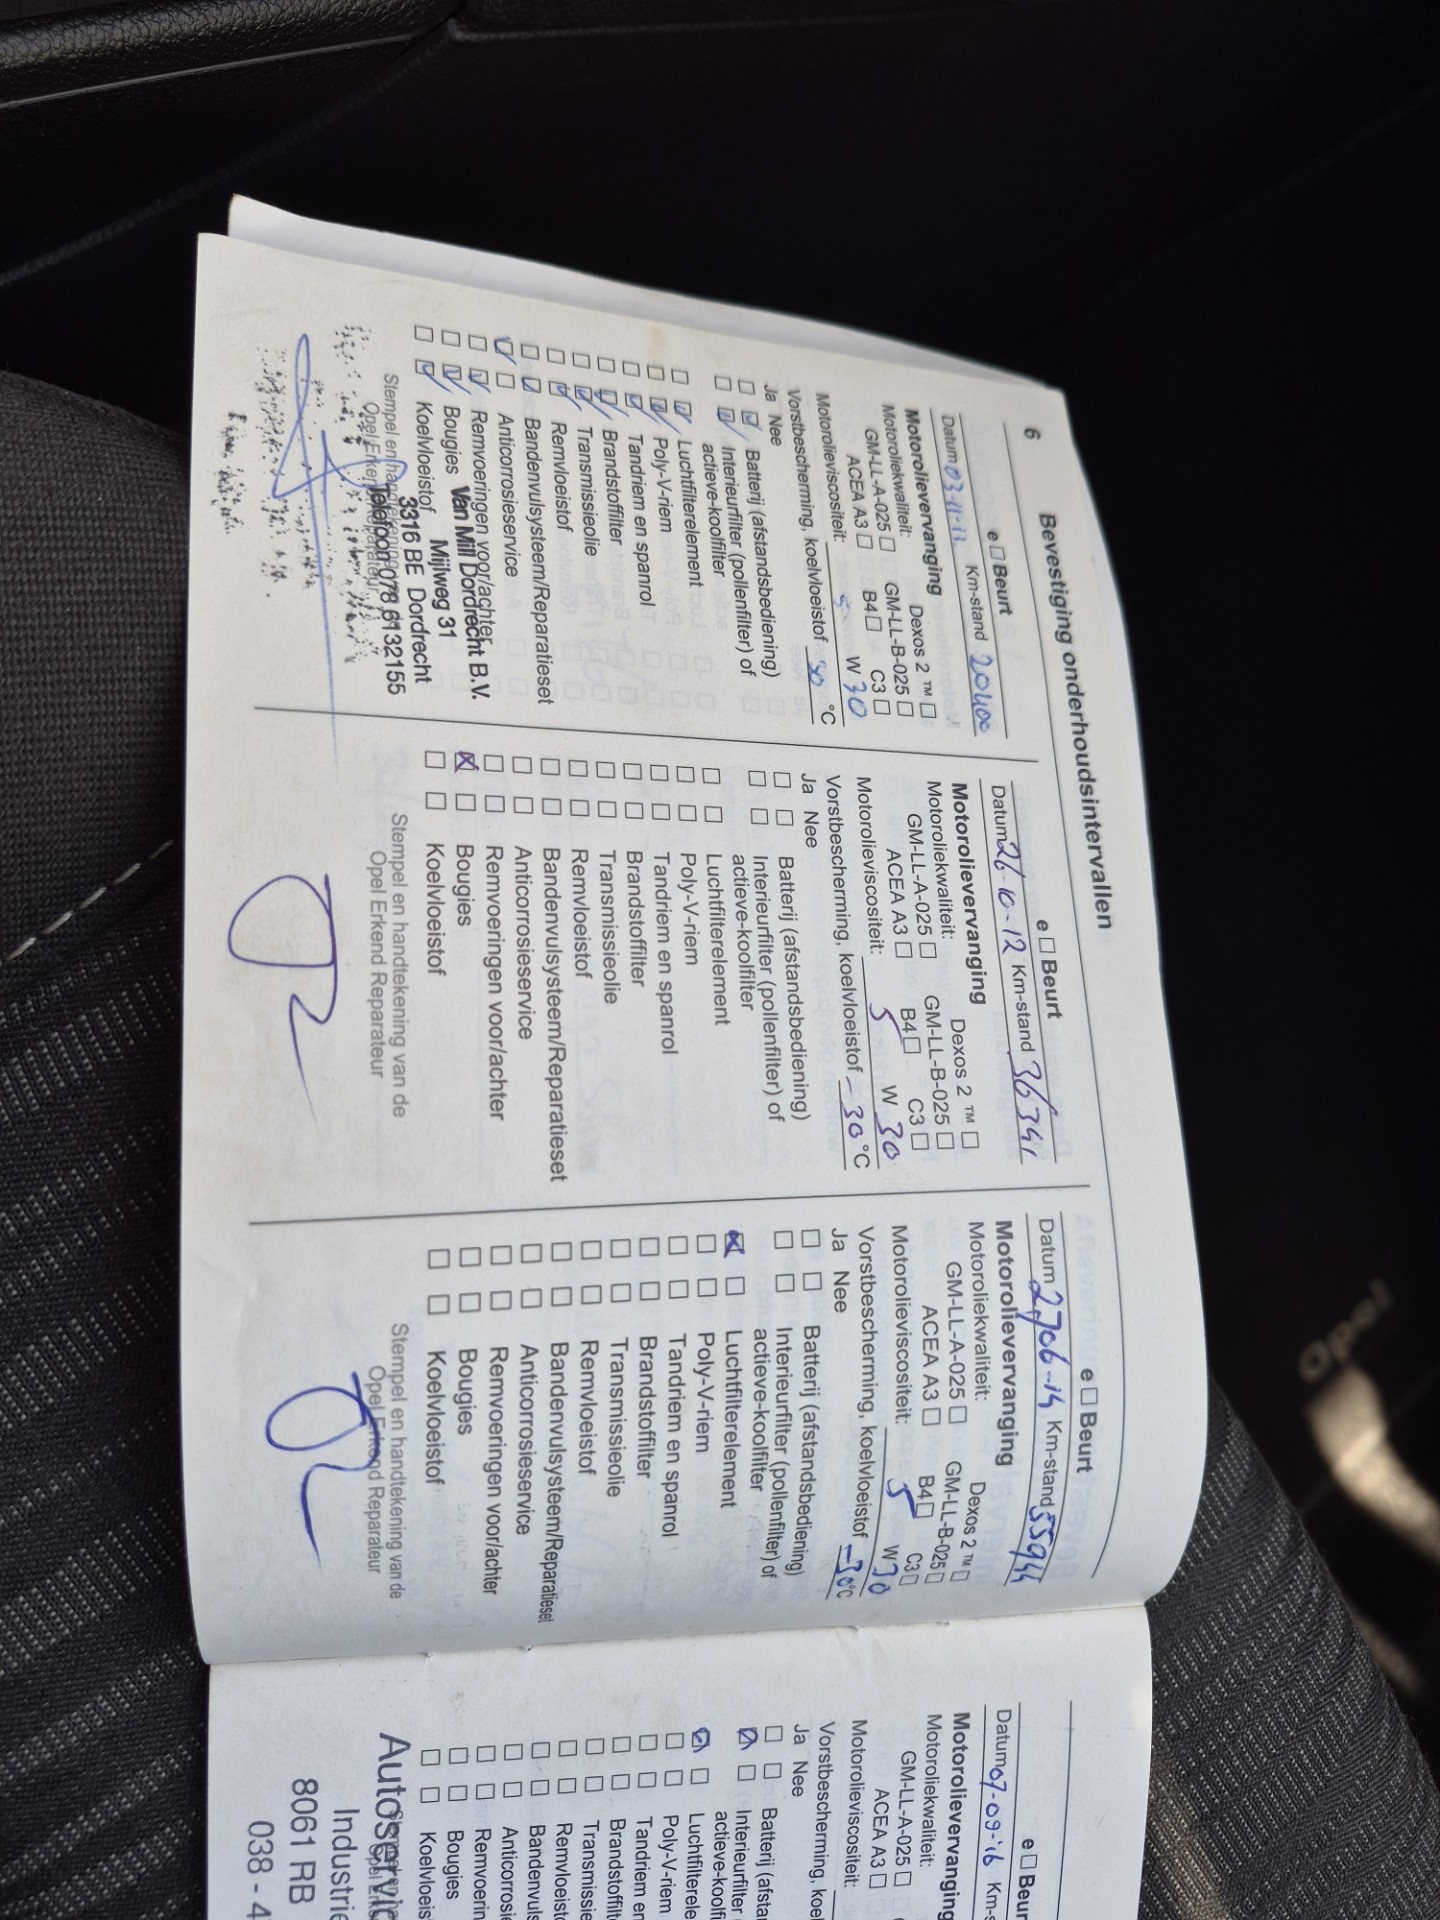 6
Bevestiging onderhoudsintervallen
e □ Beurt
Datum 03-11-11 Km-stand 20400
Motorolievervanging
Motoroliekwaliteit: Dexos 2 ™ □
GM-LL-A-025 □ GM-LL-B-025 □
ACEA A3 □ B4 □ C3 □
Motorolieviscositeit: 5 W 30
Vorstbescherming, koelvloeistof 30 °C
Ja Nee
Batterij (afstandsbediening)
Interieurfilter (pollenfilter) of
actieve-koolfilter
Luchtfilterelement
Poly-V-riem
Tandriem en spanrol
Brandstoffilter
Transmissieolie
Remvloeistof
Bandenvulsysteem/Reparatieset
Anticorrosieservice
Remvoeringen voor/achter
Bougies
Koelvloeistof
Van Mill Dordrecht B.V.
Mijlweg 31
3316 BE Dordrecht
Telefoon 078 6132155
Stempel en handtekening van de
Opel Erkend Reparateur
e □ Beurt
Datum 26-10-12 Km-stand 36341
Motorolievervanging
Motoroliekwaliteit: Dexos 2 ™ □
GM-LL-A-025 □ GM-LL-B-025 □
ACEA A3 □ B4 □ C3 □
Motorolieviscositeit: 5 W 30
Vorstbescherming, koelvloeistof -30 °C
Ja Nee
Batterij (afstandsbediening)
Interieurfilter (pollenfilter) of
actieve-koolfilter
Luchtfilterelement
Poly-V-riem
Tandriem en spanrol
Brandstoffilter
Transmissieolie
Remvloeistof
Bandenvulsysteem/Reparatieset
Anticorrosieservice
Remvoeringen voor/achter
Bougies
Koelvloeistof
Stempel en handtekening van de
Opel Erkend Reparateur
e □ Beurt
Datum 2706-14 Km-stand 55944
Motorolievervanging
Motoroliekwaliteit: Dexos 2 ™ □
GM-LL-A-025 □ GM-LL-B-025 □
ACEA A3 □ B4 □ C3 □
Motorolieviscositeit: 5 W 30
Vorstbescherming, koelvloeistof -30 °C
Ja Nee
Batterij (afstandsbediening)
Interieurfilter (pollenfilter) of
actieve-koolfilter
Luchtfilterelement
Poly-V-riem
Tandriem en spanrol
Brandstoffilter
Transmissieolie
Remvloeistof
Bandenvulsysteem/Reparatieset
Anticorrosieservice
Remvoeringen voor/achter
Bougies
Koelvloeistof
Stempel en handtekening van de
Opel Erkend Reparateur
e □ Beur
Datum 07-09-'16 Km-s
Motorolievervanging
Motoroliekwaliteit:
GM-LL-A-025 □
ACEA A3 □
Motorolieviscositeit:
Vorstbescherming, koel
Ja Nee
Batterij (afsta
Interieurfilter
actieve-koolfi
Luchtfilterele
Poly-V-riem
Tandriem en
Brandstoffilt
Transmissie
Remvloeist
Bandenvuls
Anticorrosi
Remvoerin
Bougies
Koelvloeis
Autoservic
Industrie
8061 RB
038 - 4
Opel